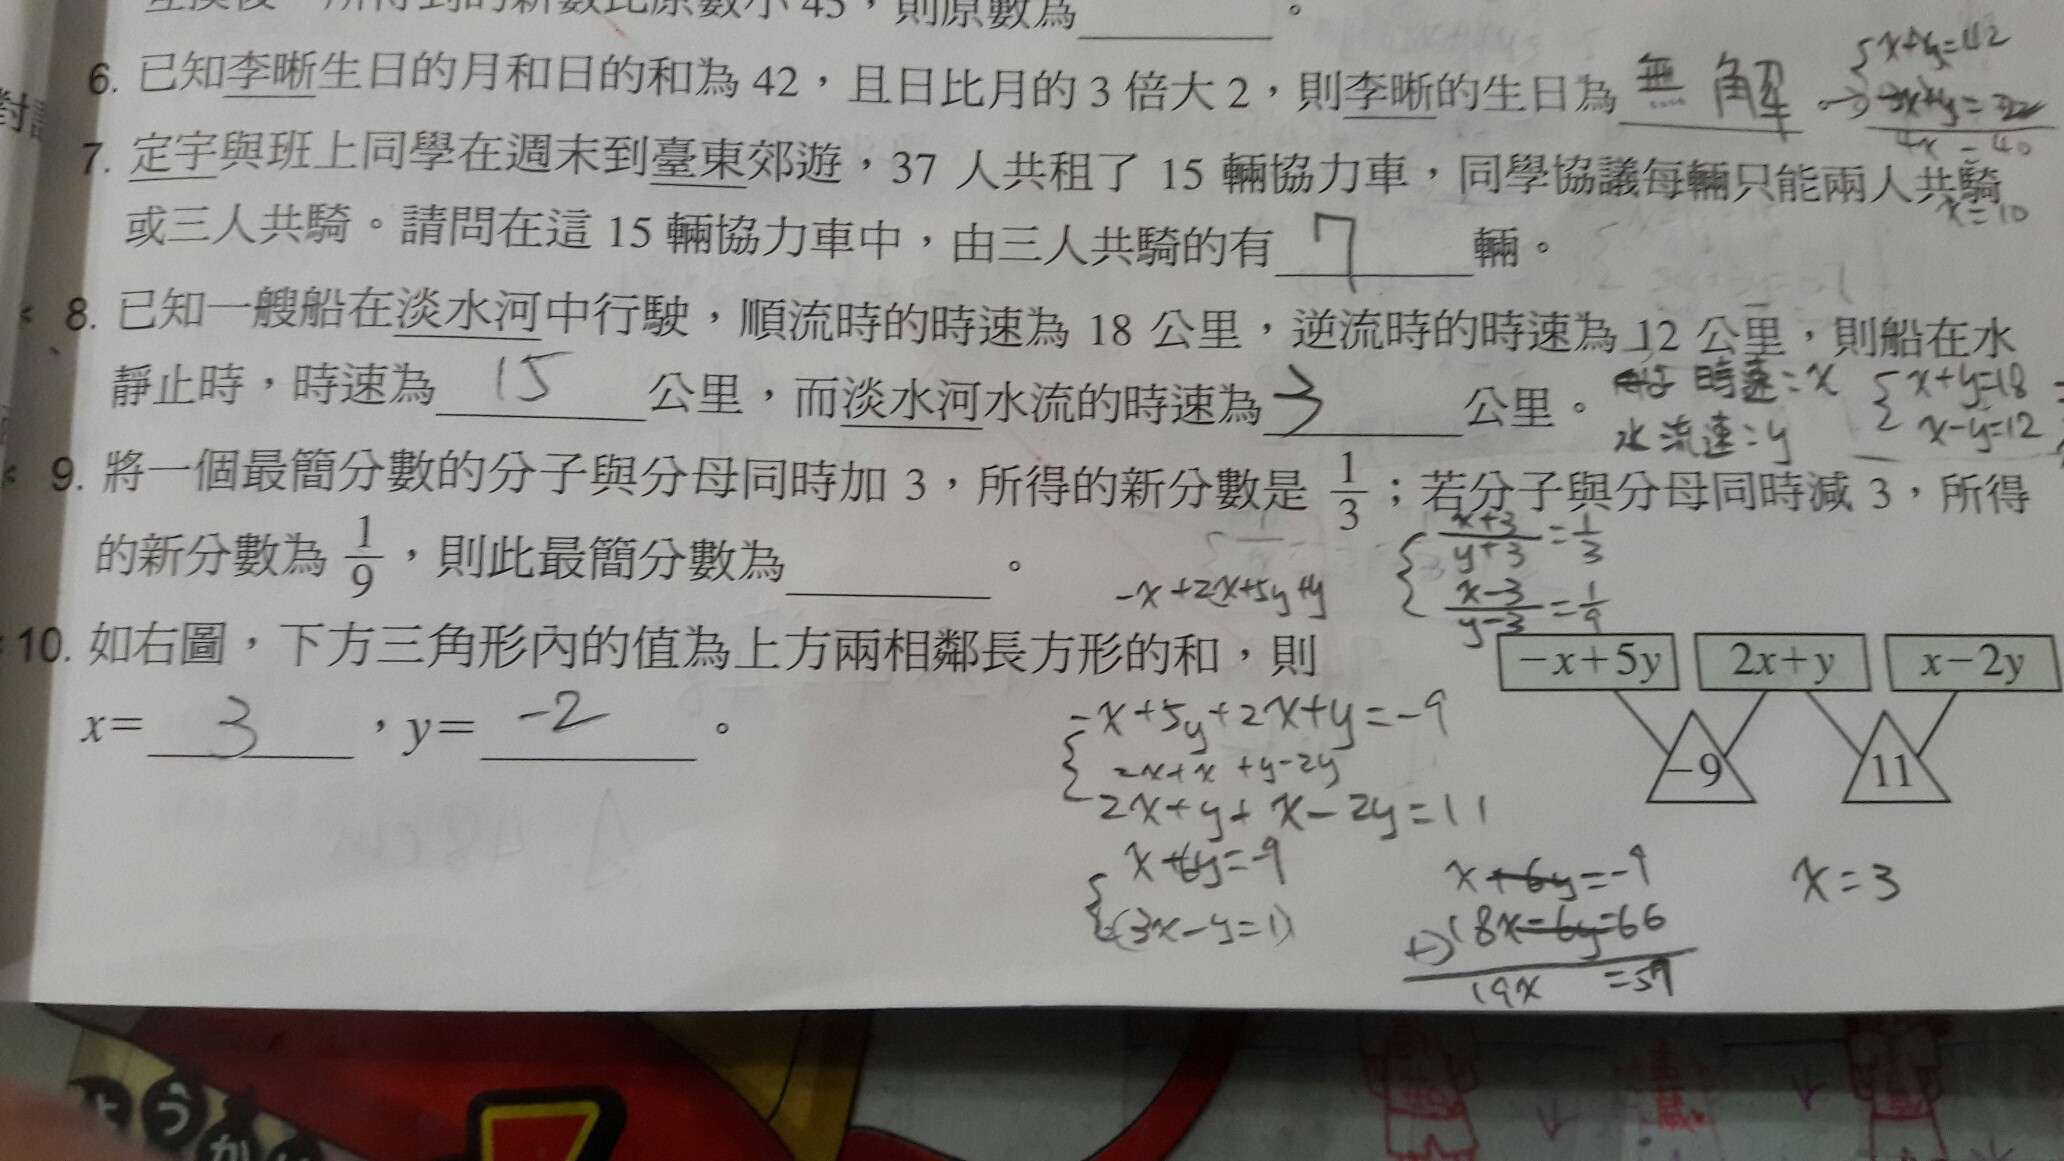 互換後，所得到的新數比原數小 45，則原數為＿＿＿。
6. 已知李晰生日的月和日的和為 42，且日比月的 3 倍大 2，則李晰的生日為 無解
x+y=42
4x = 40
x=10
7. 定宇與班上同學在週末到臺東郊遊，37 人共租了 15 輛協力車，同學協議每輛只能兩人共騎
或三人共騎。請問在這 15 輛協力車中，由三人共騎的有 7 輛。
8. 已知一艘船在淡水河中行駛，順流時的時速為 18 公里，逆流時的時速為 12 公里，則船在水
靜止時，時速為 15 公里，而淡水河水流的時速為 3 公里。
時速：x
水流速：y
x+y=18
x-y=12
9. 將一個最簡分數的分子與分母同時加 3，所得的新分數是 1/3；若分子與分母同時減 3，所得
的新分數為 1/9，則此最簡分數為＿＿＿。
x+3/y+3=1/3
x-3/y-3=1/9
-x+2x+5y+y
10. 如右圖，下方三角形內的值為上方兩相鄰長方形的和，則
x= 3 ，y= -2 。
-x+5y 2x+y x-2y
-9 11
-x+5y+2x+y=-9
2x+x +y-2y
2x+y+x-2y=11
x+6y=-9
(3x-y=11)
x+6y=-9
+)18x-6y=66
19x =57
x=3
ようか